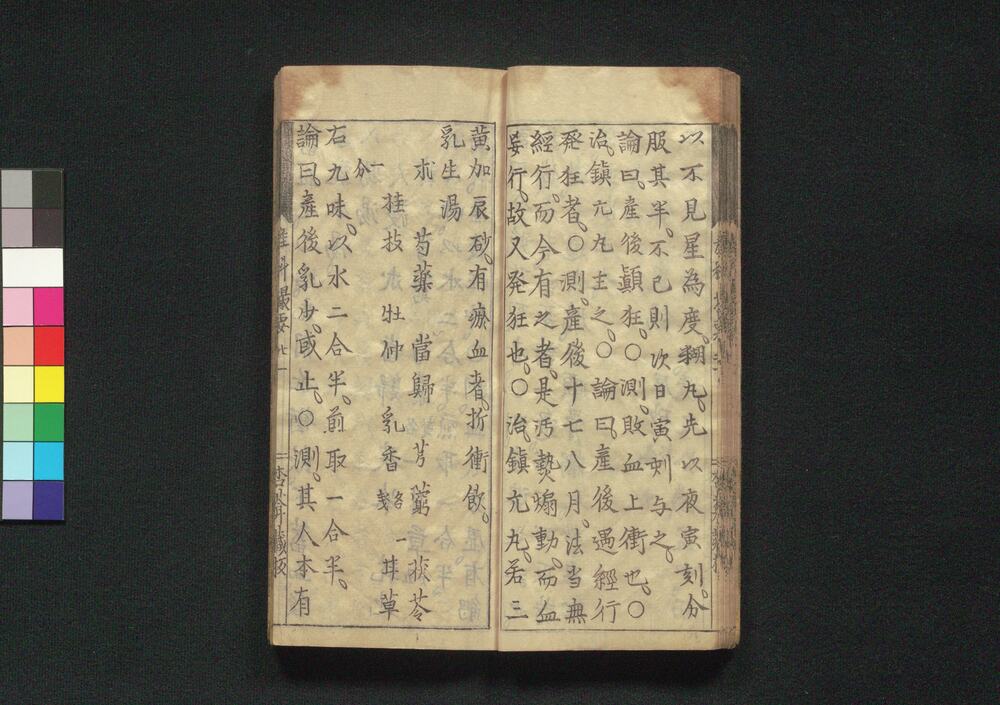 以不見星為度。糊丸。先以夜寅刻。分
服其半。不已則次日寅刻与之。
論曰。産後顛狂。〇測。敗血上衝也。〇
治。鎮亢丸主之。〇論曰。産後遇經行
発狂者。〇測。産後十七八月。法当無
經行。而今有之者。是汚熱煽動。而血
妄行。故又発狂也。〇治。鎮亢丸。若三
黄加辰砂。有瘀血者。折衝飲。
乳生湯
朮 芍藥 當歸 芎藭 茯苓
一分 桂枝 牡仲 乳香 各戔 一 甘草
右九味。以水二合半。煎取一合半。
論曰。産後乳少。或止。〇測。其人本有
産科撮要 七一
杏 藏板